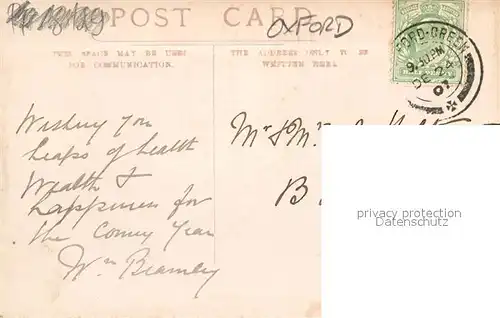 POST CARD
OXFORD
THIS SPACE MAY BE USED
FOR COMMUNICATION.
THE ADDRESS ONLY TO BE
WRITTEN HERE.
FORD-GREEN
9.30PM
DE 24
07
Wishing you
heaps of health
Wealth &
happiness for
the coming Year
Wm Bramley
Mr & Mrs
B
privacy protection
Datenschutz